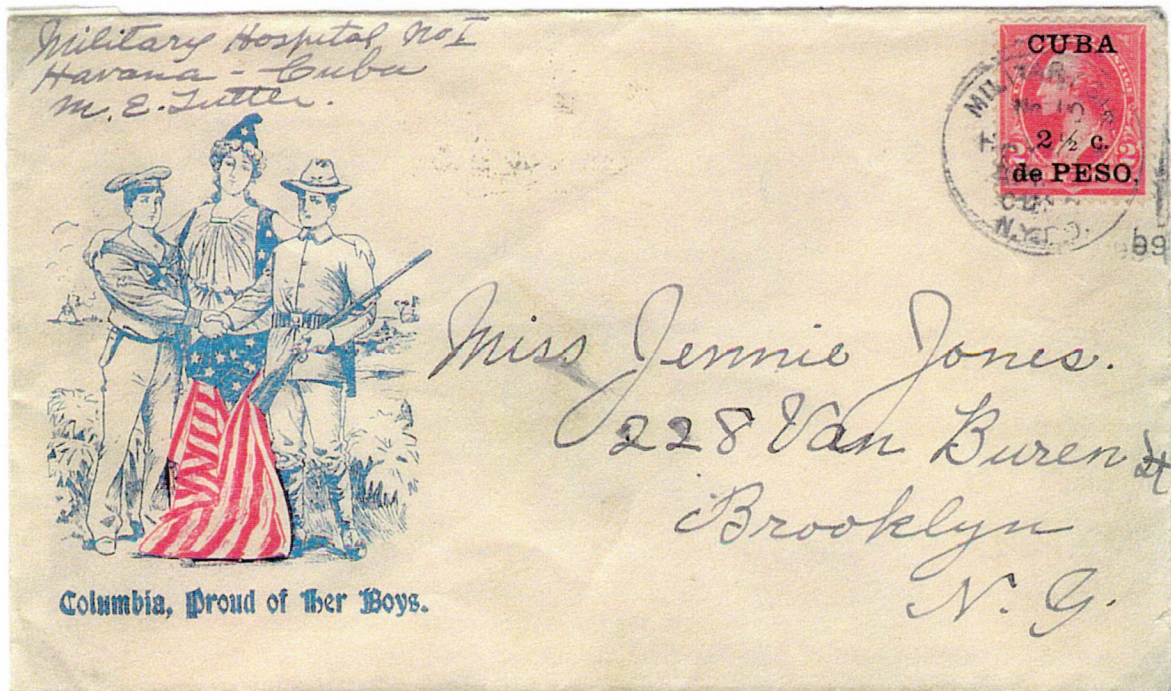 Military Hospital No I
Havana - Cuba
M. E. Tuttle.
CUBA
2 ½ c.
de PESO,
2
MILITARY
No. 10
N.Y.P.O.
99
Miss Jennie Jones.
228 Van Buren St
Brooklyn
N. Y.
Columbia, Proud of Her Boys.